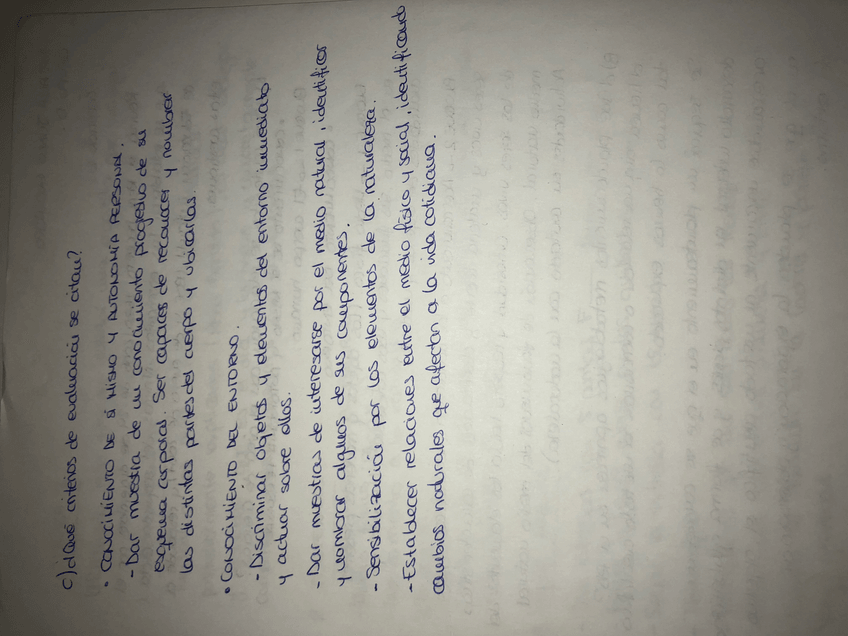 c) ¿Qué criterios de evaluación se citan?
• CONOCIMIENTO DE SÍ MISMO Y AUTONOMÍA PERSONAL.
- Dar muestra de un conocimiento progresivo de su
esquema corporal. Ser capaces de reconocer y nombrar
las distintas partes del cuerpo y ubicarlas.
• CONOCIMIENTO DEL ENTORNO.
- Discriminar objetos y elementos del entorno inmediato
y actuar sobre ellos.
- Dar muestras de interesarse por el medio natural, identificar
y nombrar algunos de sus componentes.
- Sensibilización por los elementos de la naturaleza.
- Establecer relaciones entre el medio físico y social, identificando
cambios naturales que afectan a la vida cotidiana.